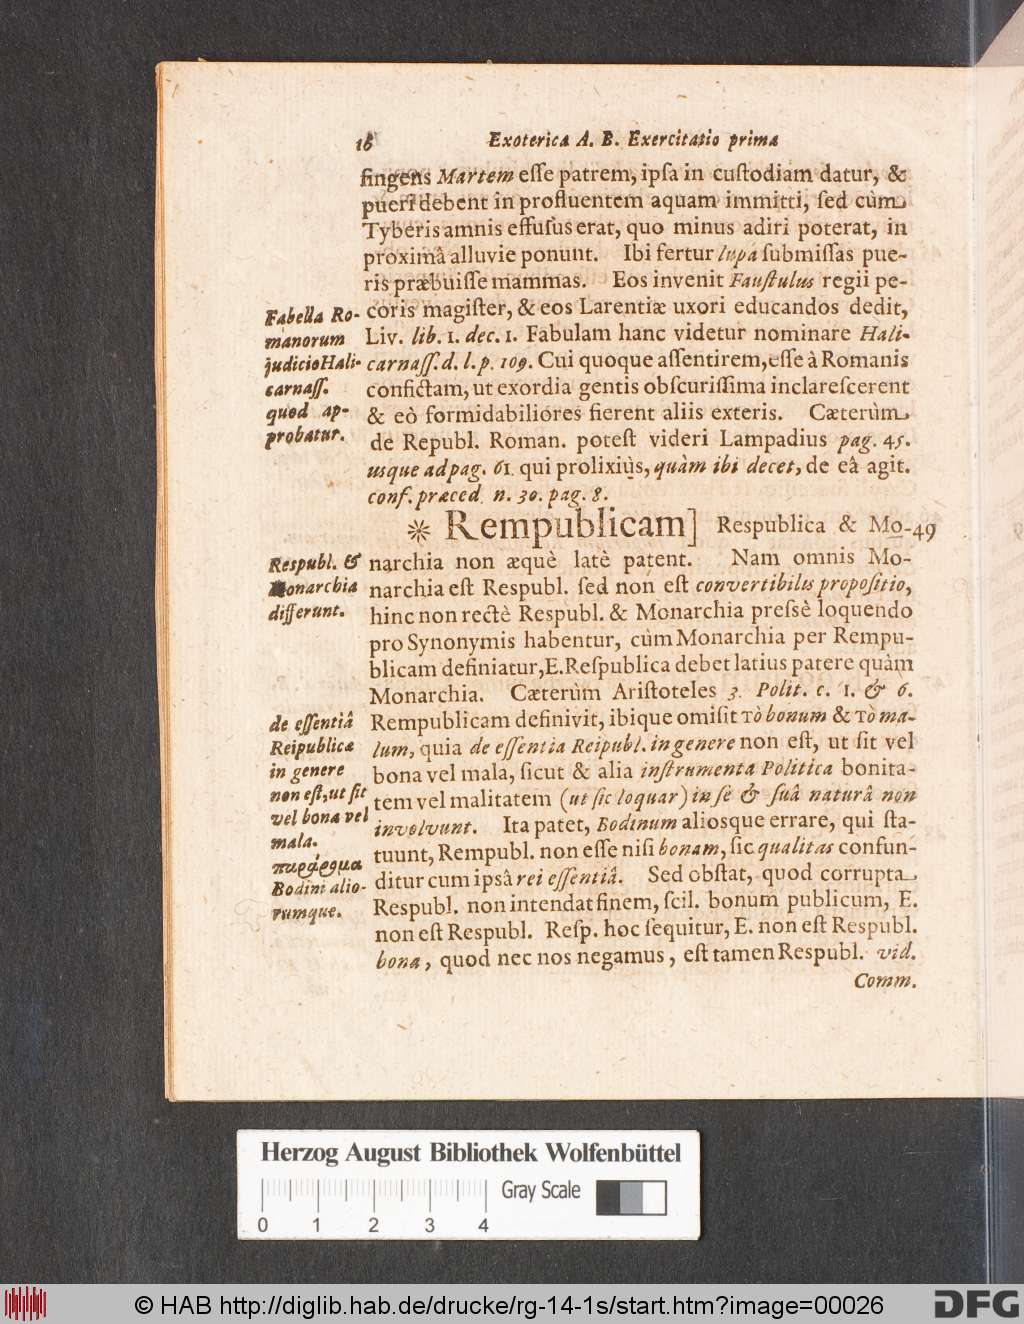 16 Exoterica A. B. Exercitatio prima
fingens Martem eſſe patrem, ipſa in cuſtodiam datur, &
pueri debent in profluentem aquam immitti, ſed cùm
Tyberis amnis effuſus erat, quo minus adiri poterat, in
proximâ alluvie ponunt. Ibi fertur lupa ſubmiſſas pue-
ris præbuiſſe mammas. Eos invenit Fauſtulus regii pe-
coris magiſter, & eos Larentiæ uxori educandos dedit,
Liv. lib. 1. dec. 1. Fabulam hanc videtur nominare Hali-
carnaſſ. d. l. p. 109. Cui quoque aſſentirem, eſſe à Romanis
confictam, ut exordia gentis obſcuriſſima inclareſcerent
& eò formidabiliores fierent aliis exteris. Cæterùm
de Republ. Roman. poteſt videri Lampadius pag. 45.
usque ad pag. 61. qui prolixiùs, quàm ibi decet, de eâ agit.
conf. præced. n. 30. pag. 8.
Fabella Ro-
manorum
judicio Hali-
carnaſſ.
quod ap-
probatur.
❊ Rempublicam] Respublica & Mo- 49
narchia non æquè latè patent. Nam omnis Mo-
narchia eſt Respubl. ſed non eſt convertibilis propoſitio,
hinc non rectè Respubl. & Monarchia preſsè loquendo
pro Synonymis habentur, cùm Monarchia per Rempu-
blicam definiatur, E. Reſpublica debet latius patere quàm
Monarchia. Cæterùm Ariſtoteles 3. Polit. c. 1. & 6.
Rempublicam definivit, ibique omiſit τὸ bonum & τὸ ma-
lum, quia de eſſentia Reipubl. in genere non eſt, ut ſit vel
bona vel mala, ſicut & alia inſtrumenta Politica bonita-
tem vel malitatem (ut ſic loquar) in ſe & ſuâ naturâ non
involvunt. Ita patet, Bodinum aliosque errare, qui ſta-
tuunt, Rempubl. non eſſe niſi bonam, ſic qualitas confun-
ditur cum ipsâ rei eſſentiâ. Sed obſtat, quod corrupta
Respubl. non intendat finem, ſcil. bonum publicum, E.
non eſt Respubl. Reſp. hoc ſequitur, E. non eſt Respubl.
bona, quod nec nos negamus, eſt tamen Respubl. vid.
Comm.
Respubl. &
Monarchia
differunt.
de eſſentiâ
Reipublicæ
in genere
non eſt, ut ſit
vel bona vel
mala.
Bodini alio-
rumque.
Herzog August Bibliothek Wolfenbüttel
Gray Scale
0 1 2 3 4
© HAB http://diglib.hab.de/drucke/rg-14-1s/start.htm?image=00026
DFG